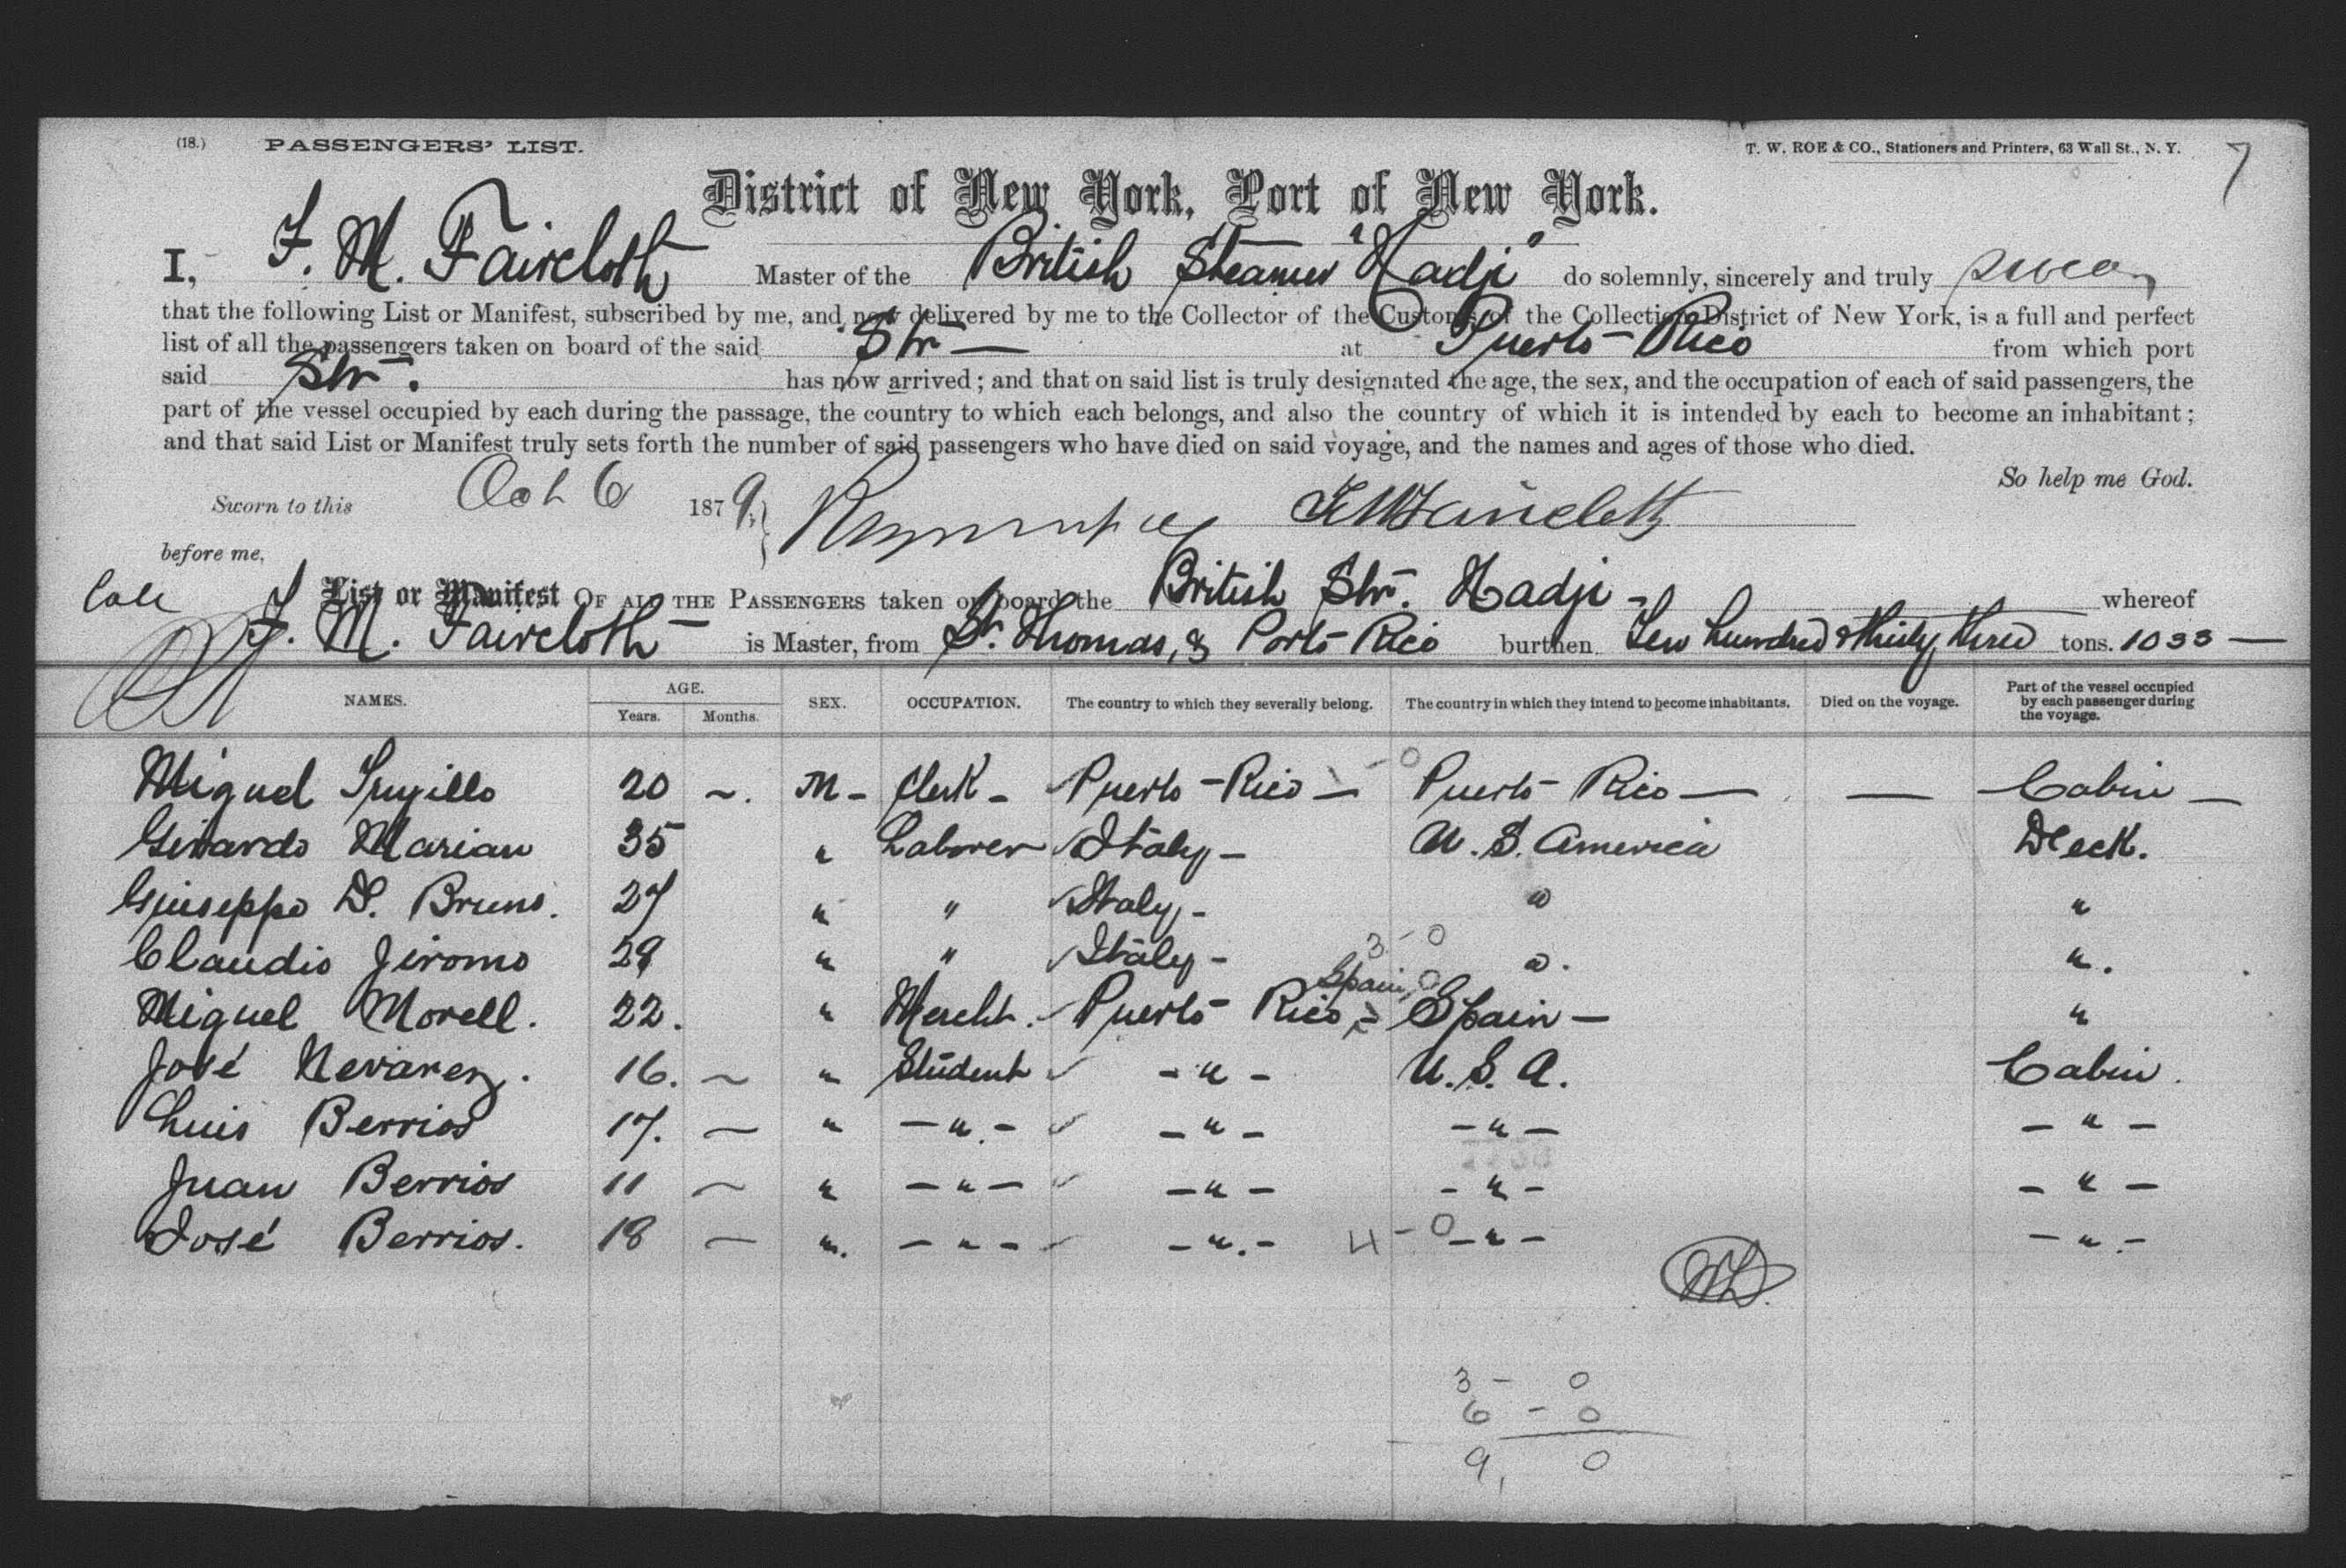 (18.) PASSENGERS' LIST. T. W. ROE & CO., Stationers and Printers, 63 Wall St., N. Y. 7
District of New York, Port of New York.
I, F. M. Faircloth Master of the British Steamer "Hadji" do solemnly, sincerely and truly swear
that the following List or Manifest, subscribed by me, and now delivered by me to the Collector of the Customs of the Collection District of New York, is a full and perfect
list of all the passengers taken on board of the said Str — at Puerto-Rico from which port
said Str. has now arrived; and that on said list is truly designated the age, the sex, and the occupation of each of said passengers, the
part of the vessel occupied by each during the passage, the country to which each belongs, and also the country of which it is intended by each to become an inhabitant;
and that said List or Manifest truly sets forth the number of said passengers who have died on said voyage, and the names and ages of those who died.
So help me God.
Sworn to this Oct 6 1879, F M Faircloth
before me,
List or Manifest OF ALL THE PASSENGERS taken on board the British Str. Hadji - whereof
F. M. Faircloth — is Master, from St. Thomas, & Porto Rico burthen Ten hundred & thirty three tons. 1033 —
NAMES. AGE. Years. Months. SEX. OCCUPATION. The country to which they severally belong. The country in which they intend to become inhabitants. Died on the voyage. Part of the vessel occupied by each passenger during the voyage.
Miguel Trujillo 20 ~. M - Clerk - Puerto-Rico — 1 - 0 Puerto-Rico — — Cabin —
Marian 35 " Laborer Italy - U. S. America Deck.
Giuseppo D. Bruno. 27 " " Italy - " "
Claudio Jiromo 29 " " Italy - 3 - 0 " ".
Miguel Morell. 22. " Mercht. Puerto Rico Spain, 0 Spain — "
José Nevarez. 16. ~ " Student - " - U. S. A. Cabin.
Luis Berrios 17. ~ " - ". - - " - - " - - " -
Juan Berrios 11 ~ " - " - - " - - " - - " -
José Berrios. 18 ~ ". - " - - ". - 4 - 0 - " - - ". -
3 - 0
6 - 0
9, 0